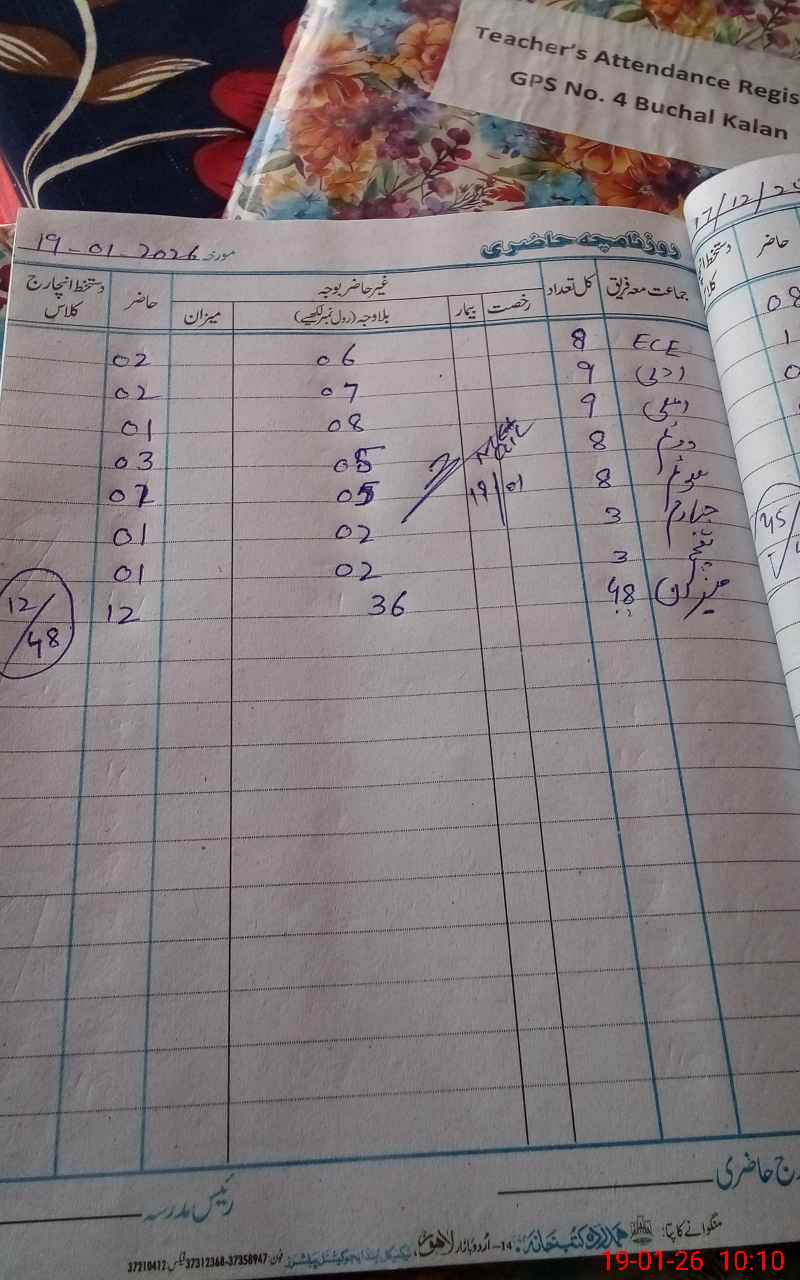 Teacher's Attendance Regis
GPS No. 4 Buchal Kalan
17/12/2
حاضر
08
45
روزنامچہ حاضری
مورخہ 19-01-2026
جماعت معہ فریق کل تعداد غیر حاضر بوجہ حاضر دستخط انچارج کلاس
رخصت بیمار بلاوجہ (رول نمبر لکھیے) میزان
ECE 8 06 02
ادنیٰ 9 07 02
اعلیٰ 9 08 01
دوئم 8 05 03
سوئم 8 05 02
چہارم 3 02 01
پنجم 3 02 01
میزان 48 36 12
12/48
19/01
رئیس مدرسہ
ج حاضری
منگوانے کا پتہ: ہمدرد کتب خانہ: 14-اردو بازار لاہور
فون: 37358947-37312368 فیکس: 37210412
19-01-26 10:10